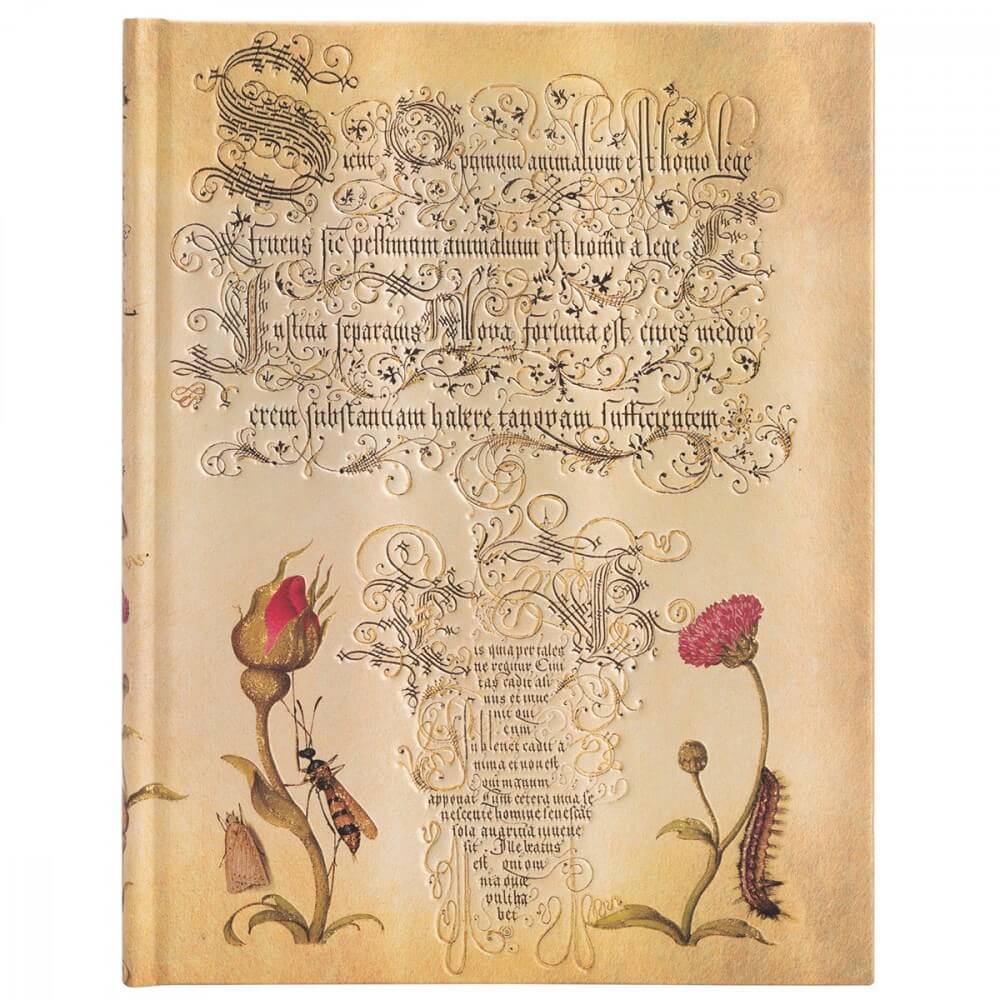 Sicut Optimum animalium est homo lege
fruens sic pessimum animalium est homo a lege Et
Iustitia separatus Nova fortuna est, cives medio
crem substantiam habere tanquam sufficientem
is quia per tales
ne regitur, Civi
tas cadit asi
nus et inve
nit qui
eum
sublevet cadit a
nima et non est
qui manum
apponat Cum cetera vitia se
nescente homine senescat
sola avaritia iuvene
sit. Ille beatus
est qui om
nia quae
vult ha
bet.